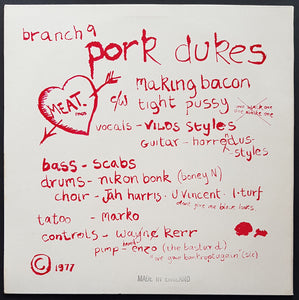 branch 9
pork dukes
MEAT.
making bacon
c/w tight pussy
vocals - VILOS styles
guitar - horrendus styles
bass - scabs
drums - nikon bonk (boney N)
choir - Jah harris. U vincent. I-turf
tatoo - marko
controls - wayne kerr
pimp - enzo (the bastard)
© 1977
MADE IN ENGLAND